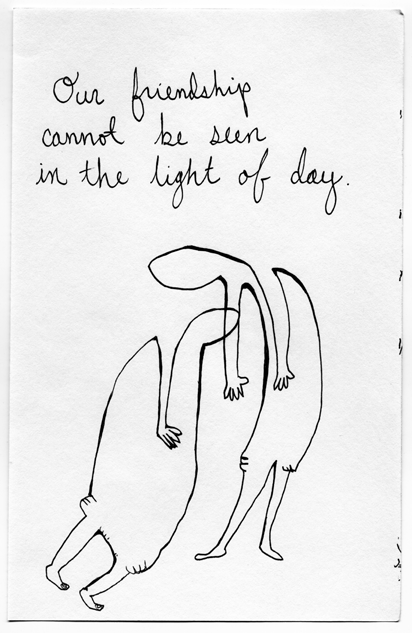 Our friendship
cannot be seen
in the light of day.